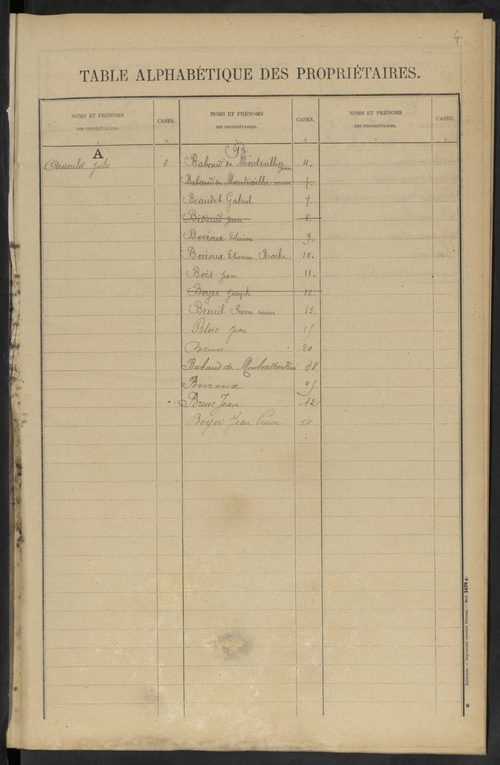 4
TABLE ALPHABÉTIQUE DES PROPRIÉTAIRES.
NOMS ET PRÉNOMS
DES PROPRIÉTAIRES.
CASES.
NOMS ET PRÉNOMS
DES PROPRIÉTAIRES.
CASES.
NOMS ET PRÉNOMS
DES PROPRIÉTAIRES.
CASES.
A
Arnould Jules 1
B
Babaud de Montvallier Jean 4.
Babaud de Montvallier veuve
Beaudet Gabriel 7
Bévaud Jean 8.
Boiroux Etienne 9.
Boiroux Etienne Roche 10.
Bois Jean 11.
Boyer Joseph 12.
Breuil Pierre veuve 13.
Blois Jean 15
Brun 20
Babaud de Montvallier 38
Boiroux
Brun Jean 12
Boyer Jean Pierre 14